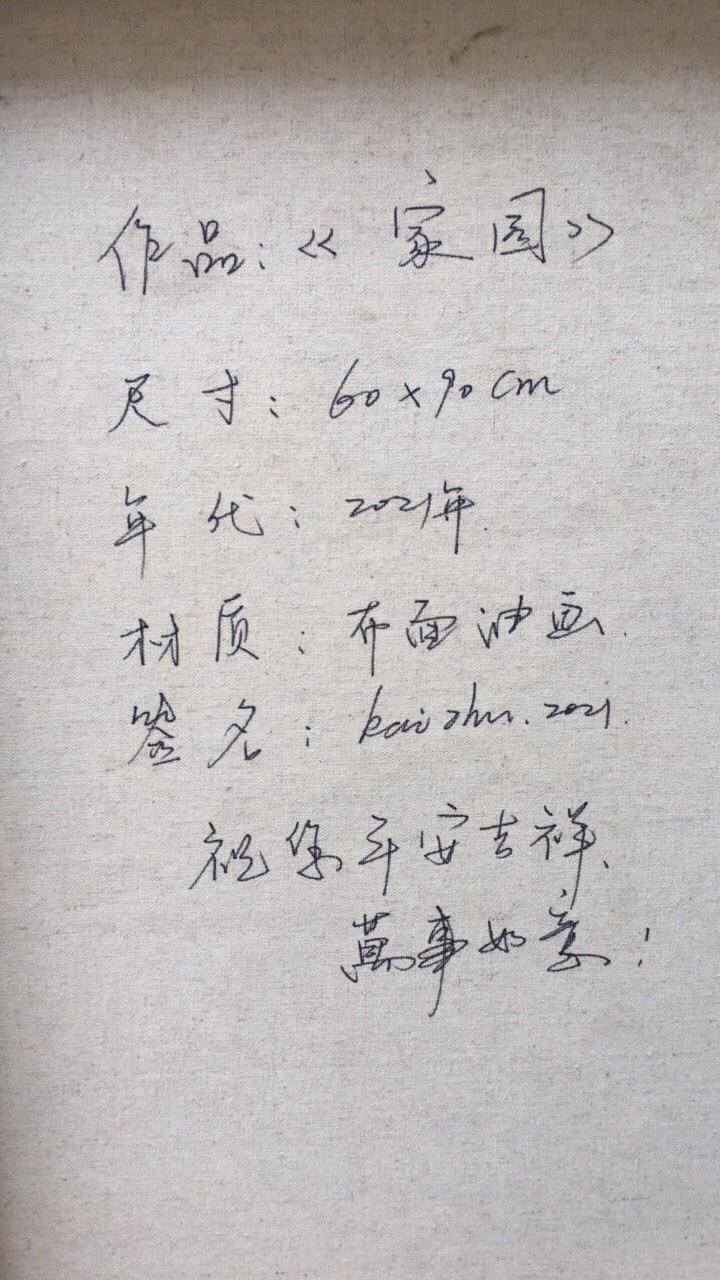 作品：《家园》
尺寸：60×90cm
年代：2021年.
材质：布面油画.
签名：kaizhu.2021.
祝您平安吉祥、
萬事如意！